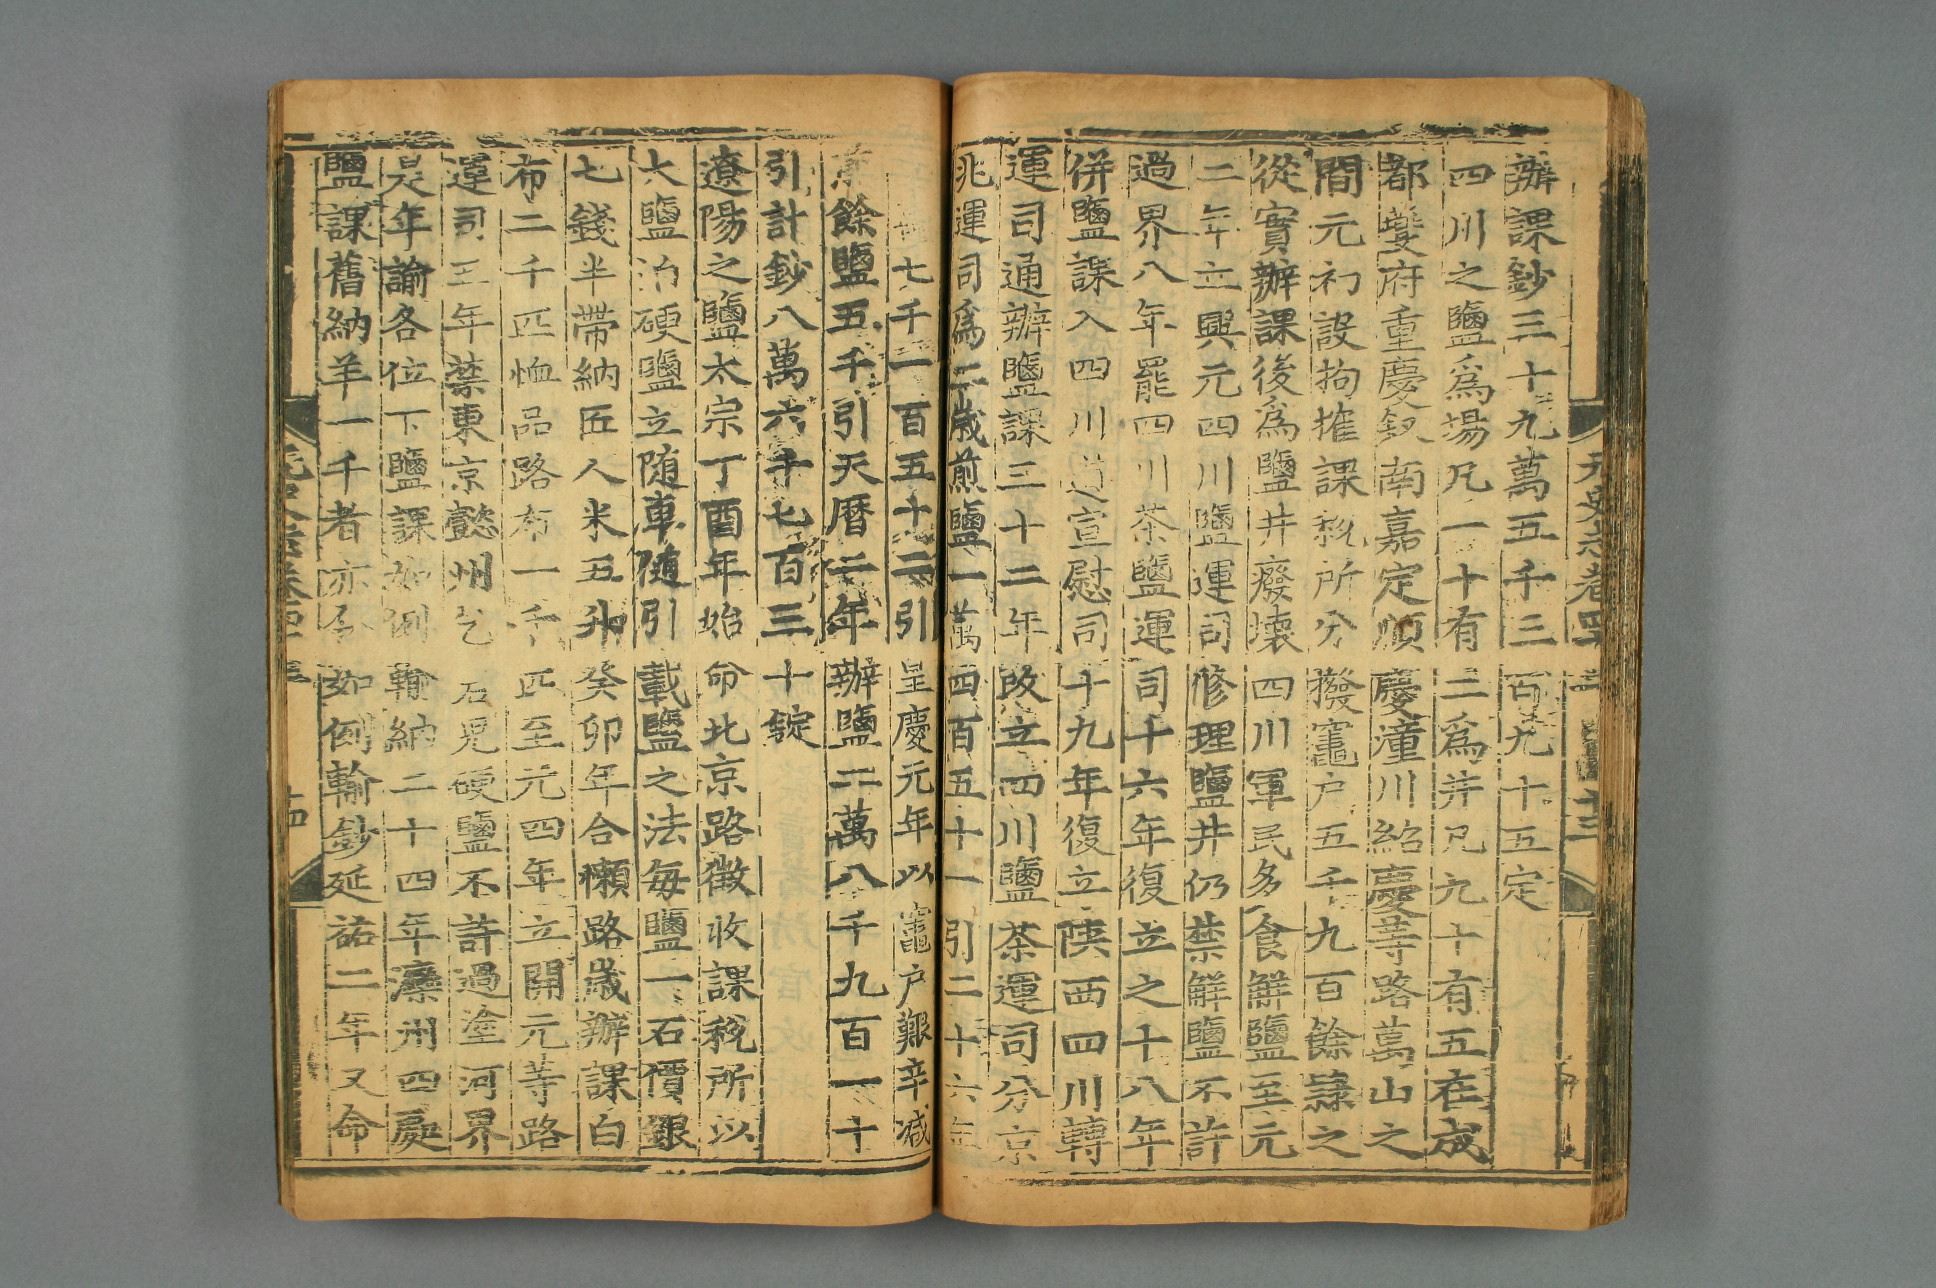 元史志卷四十三 十三
辦課鈔三十九萬五千三百九十五定
四川之鹽爲場凡一十有二爲井凡九十有五在成
都夔府重慶叙南嘉定順慶潼川紹慶等路萬山之
間元初設拘搉課稅所分撥竈户五千九百餘隷之
從實辦課後爲鹽井癈壞四川軍民多食解鹽至元
二年立興元四川鹽運司修理鹽井仍禁解鹽不許
過界八年罷四川茶鹽運司十六年復立之十八年
併鹽課入四川道宣慰司十九年復立陝西四川轉
運司通辦鹽課二十二年改立四川鹽茶運司分京
兆運司爲二歲煎鹽一萬四百五十一引二十六年
七千一百五十二引皇慶元年以竈户艱辛減
煎餘鹽五千引天曆二年辦鹽二萬八千九百一十
引計鈔八萬六千七百三十錠
遼陽之鹽太宗丁酉年始命北京路徵收課稅所以
大鹽泊硬鹽立随車随引載鹽之法每鹽一石價銀
七錢半帶納匠人米五升癸卯年合懶路歲辦課白
布二千匹恤品路布一千匹至元四年立開元等路
運司五年禁東京懿州乞石兒硬鹽不許過塗河界
是年諭各位下鹽課如例輸納二十四年灤州四處
鹽課舊納羊一千者亦令如例輸鈔延祐二年又命
十四